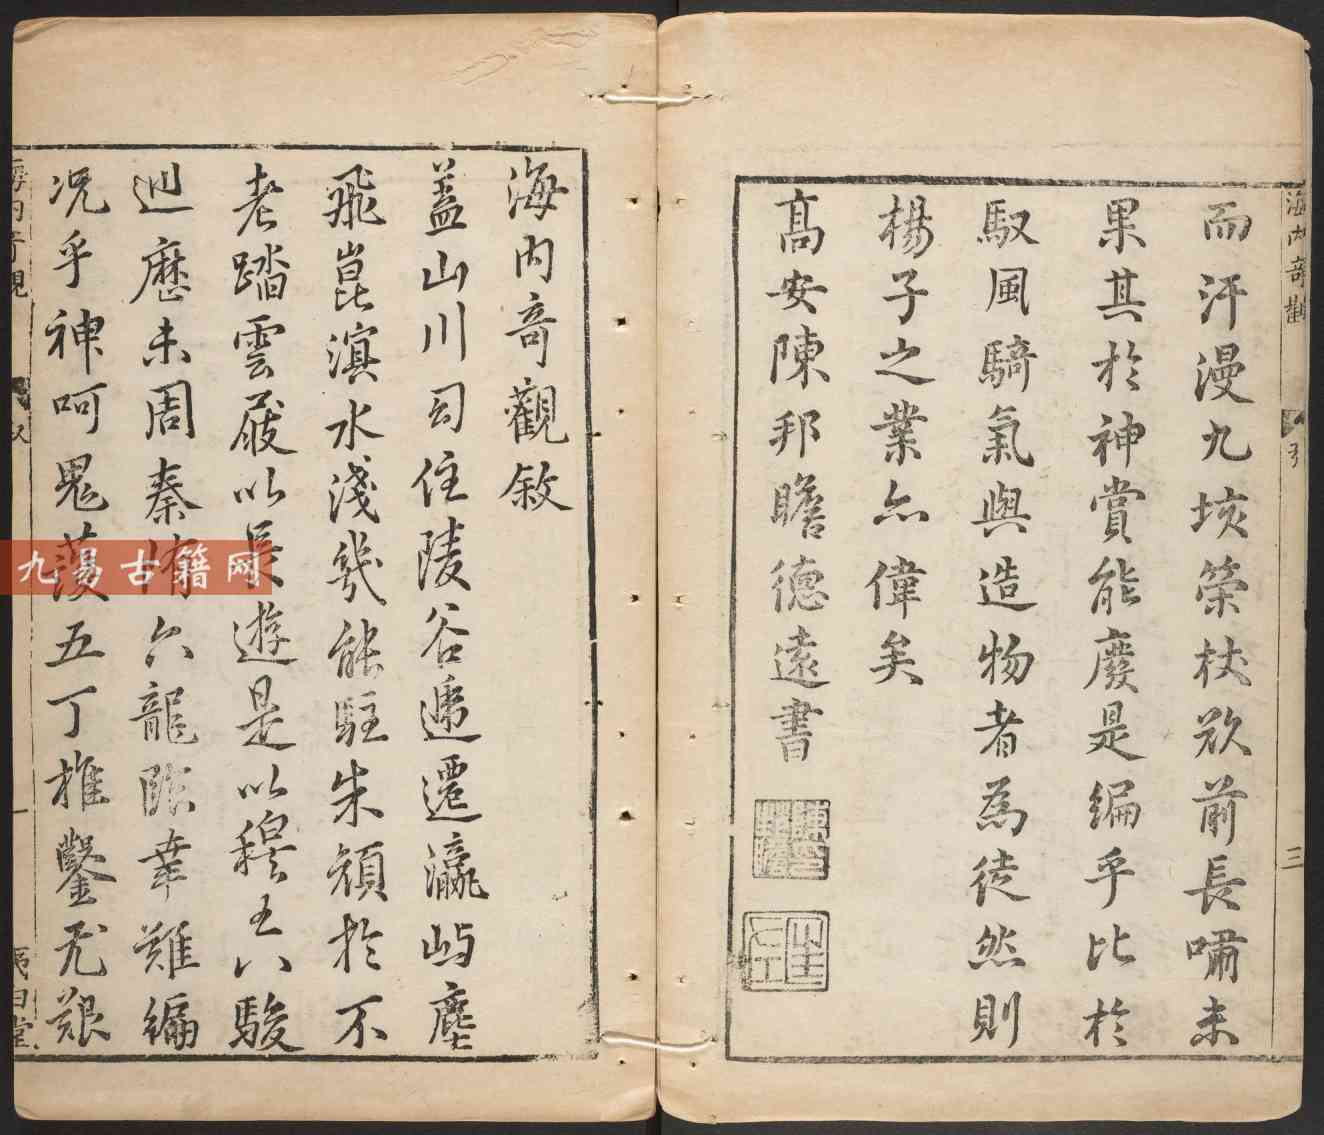 海内奇觀
引
三
而汗漫九垓策杖欲前長嘯未
果其於神賞能廢是編乎比於
馭風騎氣與造物者為徒然則
楊子之業亦偉矣
髙安陳邦瞻德遠書
海内奇觀敘
蓋山川司住陵谷遞遷瀛嶼塵
飛崑溟水淺幾能駐朱顔於不
老踏雲屐以長遊是以穆王八駿
迴歷未周秦六龍臨幸難編
况乎神呵鬼護五丁椎鑿尤艱
海内奇觀
一
夷白堂
九易古籍网